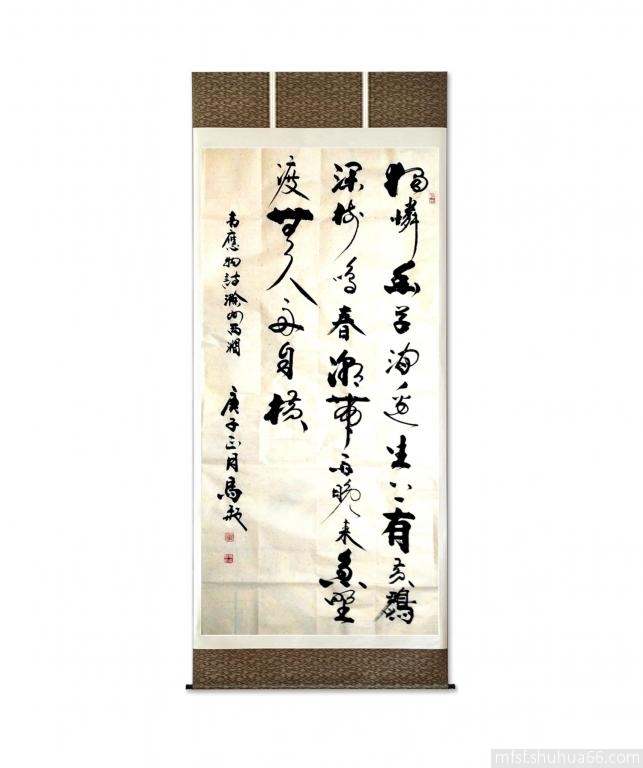 獨憐幽草澗邊生上有黄鸝
深樹鳴春潮帶雨晚来急野
渡無人舟自橫
韋應物詩滁州西澗 庚子正月馬
mfsf.shuhua66.com